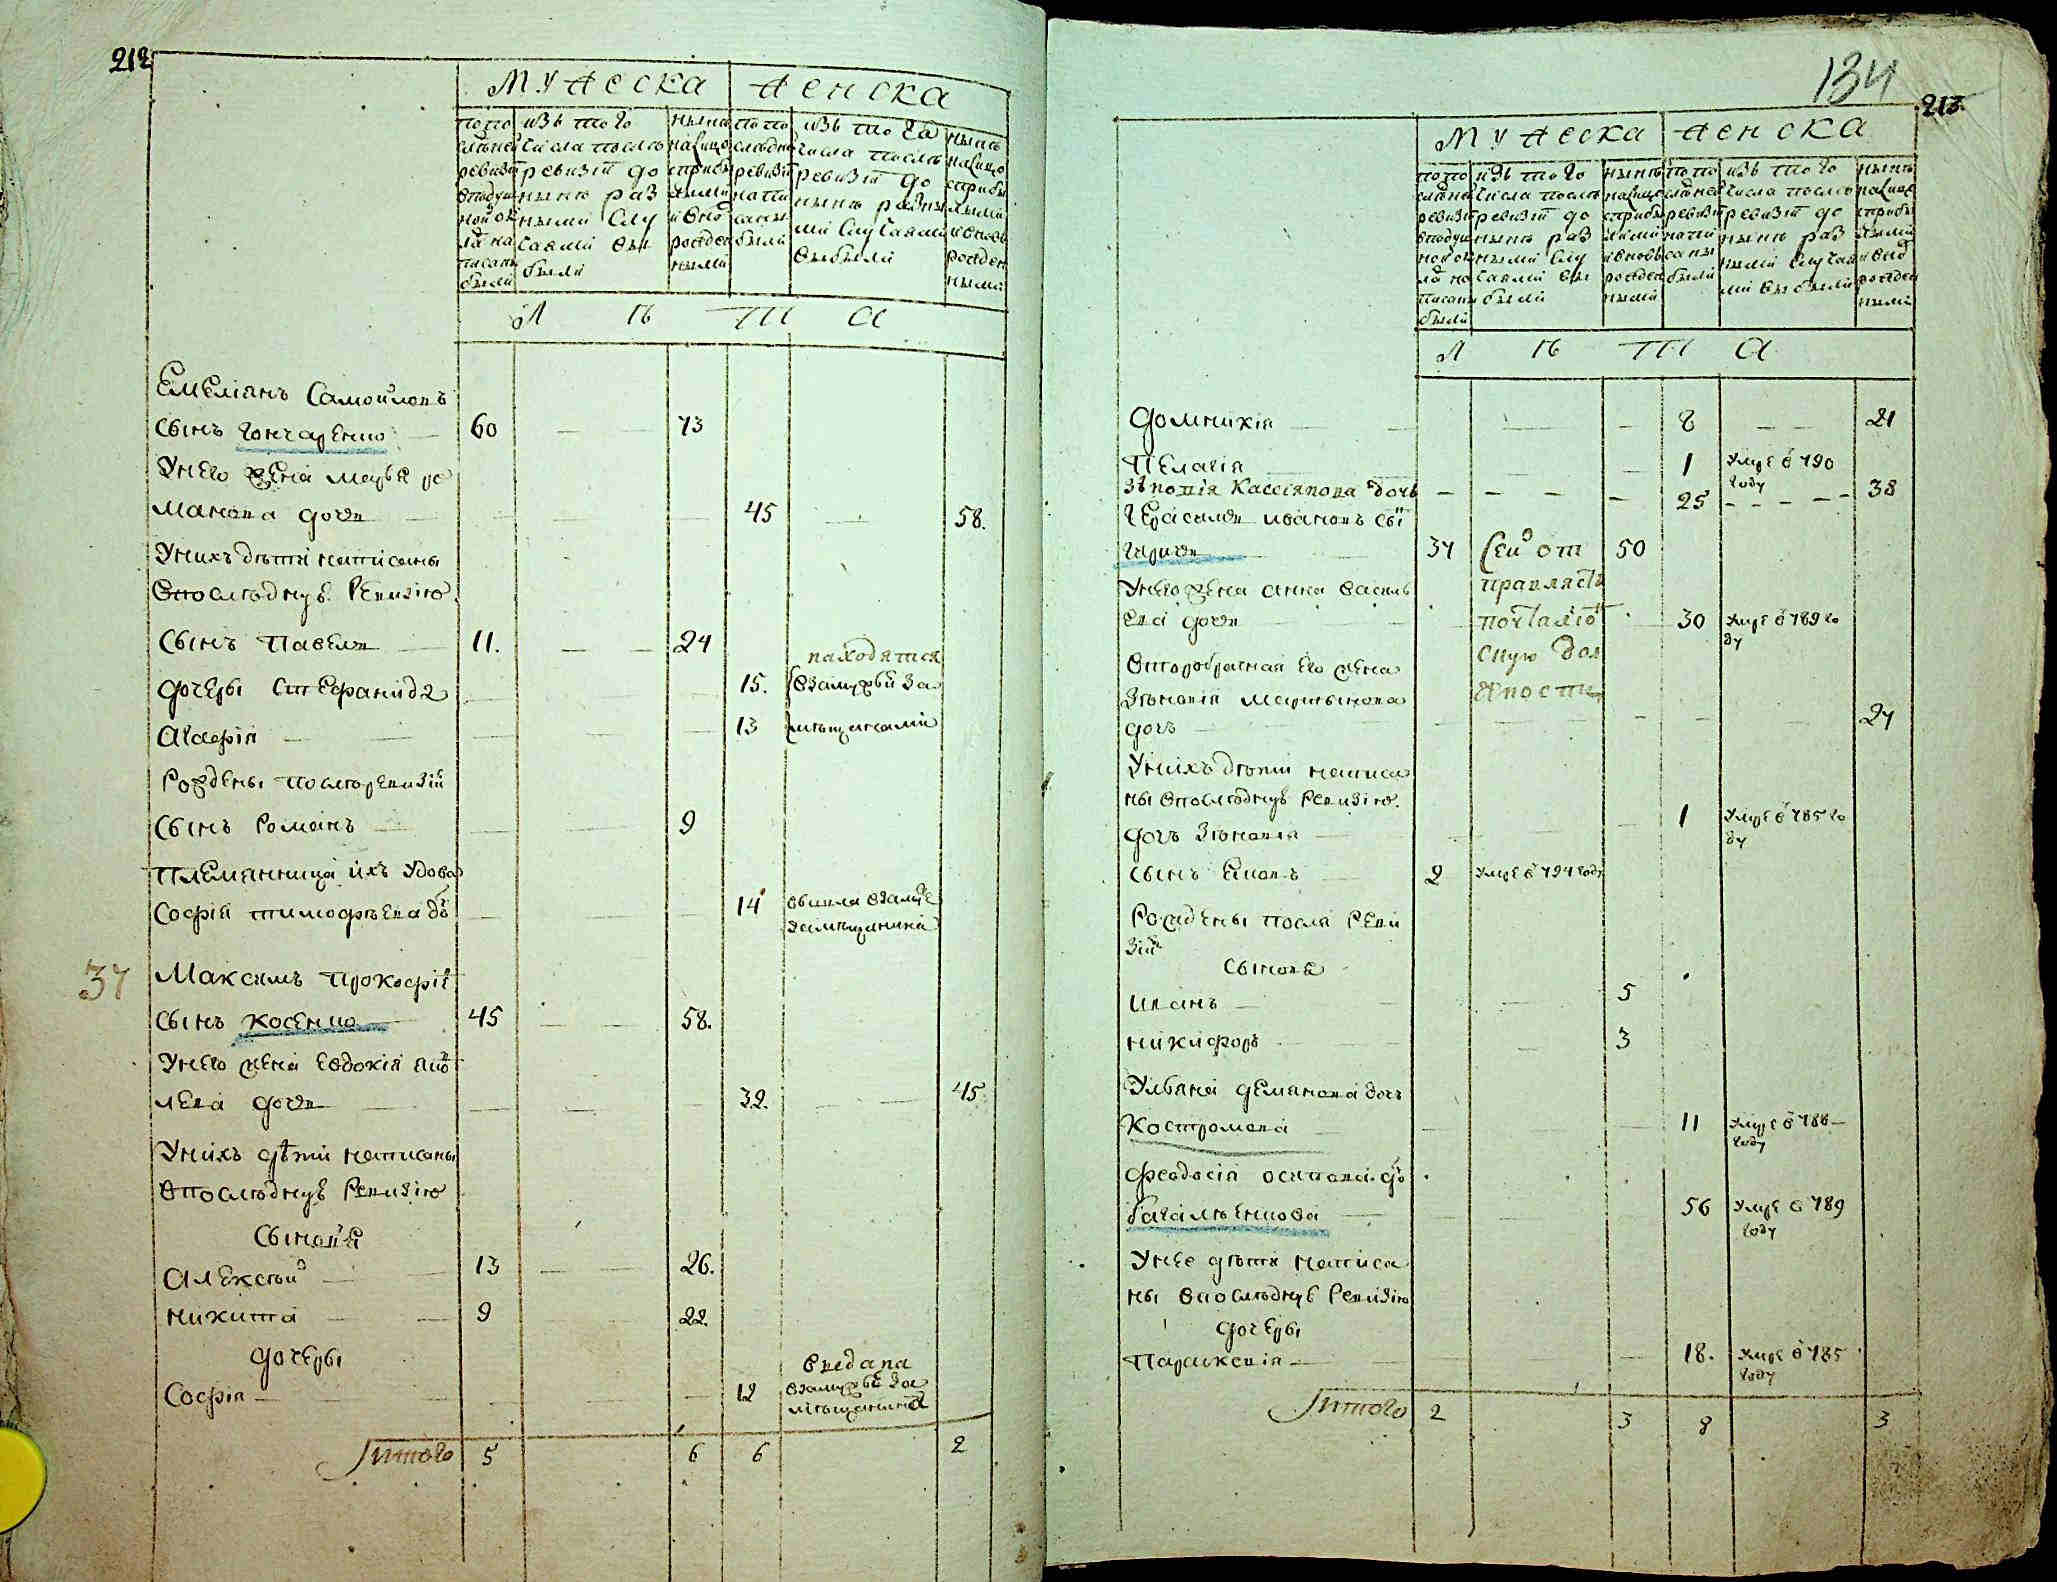 212
мужеска женска
по по
слѣдней
ревизїи
в подуш
ной ок
ладъ на
писаны
были
изъ того
числа послѣ
ревизїи до
нынѣ раз
ными слу
чаями вы
были
нынѣ
на лицо
с прибы
лыми
и вновь
рожден
ными
по по
слѣдней
ревизїи
напи
саны
были
изъ того
числа послѣ
ревизїи до
нынѣ разны
ми случаями
выбыли
нынѣ
на лицо
с прибы
лыми
и вновь
рожден
ными
л ѣ т а
Емелїянъ Самойловъ
сынъ Гончаренко 60 73
У него жена Марья ро
манова дочь 45 58.
У нихъ дѣти написаны
в последную ревизїю
Сынъ Павелъ 11. 24
находятся
дочери Стефанида 15. в замужѣ за
Агафїя 13 мѣщанами
Рождены после ревизїй
Сынъ Романъ 9
племянница ихъ удова
Софїя тимофѣева до 14 вышла в замуже
за мещанина
37 Максимъ прокофїе
сынъ Косенко 45 58.
У него жена Евдокїя яко
лева дочь 32. 45.
У нихъ дѣти написаны
в последную ревизїю
Сыновя
Алексѣй 13 26.
Никита 9 22.
дочери
выдана
Софїя 12 в замуже за
мѣщанина
Итого 5 6 6 2
134
213
мужеска женска
по по
слѣдней
ревизїи
в подуш
ной ок
ладъ на
писаны
были
изъ того
числа послѣ
ревизїи до
нынѣ раз
ными слу
чаями вы
были
нынѣ
на лицо
с прибы
лыми
и вновь
рожден
ными
по по
слѣдней
ревизїи
напи
саны
были
изъ того
числа послѣ
ревизїи до
нынѣ раз
ными случая
ми выбыли
нынѣ
на лицо
с прибы
лыми
и вно
рожден
ными
л ѣ т а
Домникїя 8 21
Пелагїя 1 умре в 790
году
Зѣновїя Кассїянова дочь 25 38
Герасимъ Ивановъ сы
37 Сей от 50
У него жена Анна Василь правляетъ
ева дочь почталїо 30 умре в 789 го
ду
Второбрачная его жена скую дол
Зѣновїя Мартынова жность
дочь 27
У нихъ дѣти написа
ны в последную ревизїю.
дочь Зѣновїя 1 умре в 785 го
ду
сынъ Яковъ 2 умре в 794 году
Рождены после реви
зїй
Сыновя
Иванъ 5
Никифоръ 3
Ульяна Демянова дочь
Костромева 11 умре в 788
году
Феодосїя Осипова до
56 умре в 789
году
У нее дѣти написа
ны в последную ревизїю
дочери
Параскевїя 18. умре в 785
году
Итого 2 3 8 3